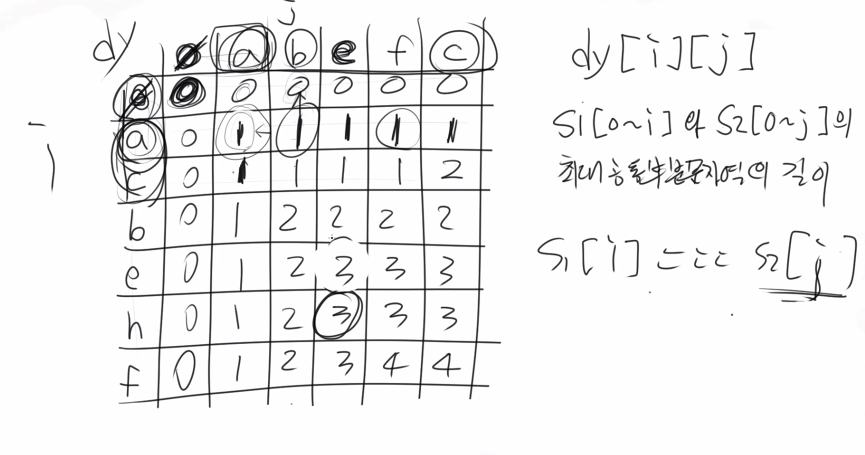 j
dy ø a b e f c
ø 0 0 0 0 0 0
i
a 0 1 1 1 1 1
c 0 1 1 1 1 2
b 0 1 2 2 2 2
e 0 1 2 3 3 3
h 0 1 2 3 3 3
f 0 1 2 3 4 4
dy[i][j]
S1[0~i] 와 S2[0~j]의
최대 공통부분문자열의 길이
S1[i] === S2[j]